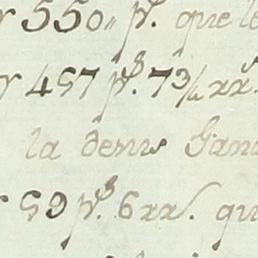 r 550„ pˢ. que le
r 457 pˢ. 7 3/4 xxˢ.
la denis Gana
59 pˢ. 6 xx. qu